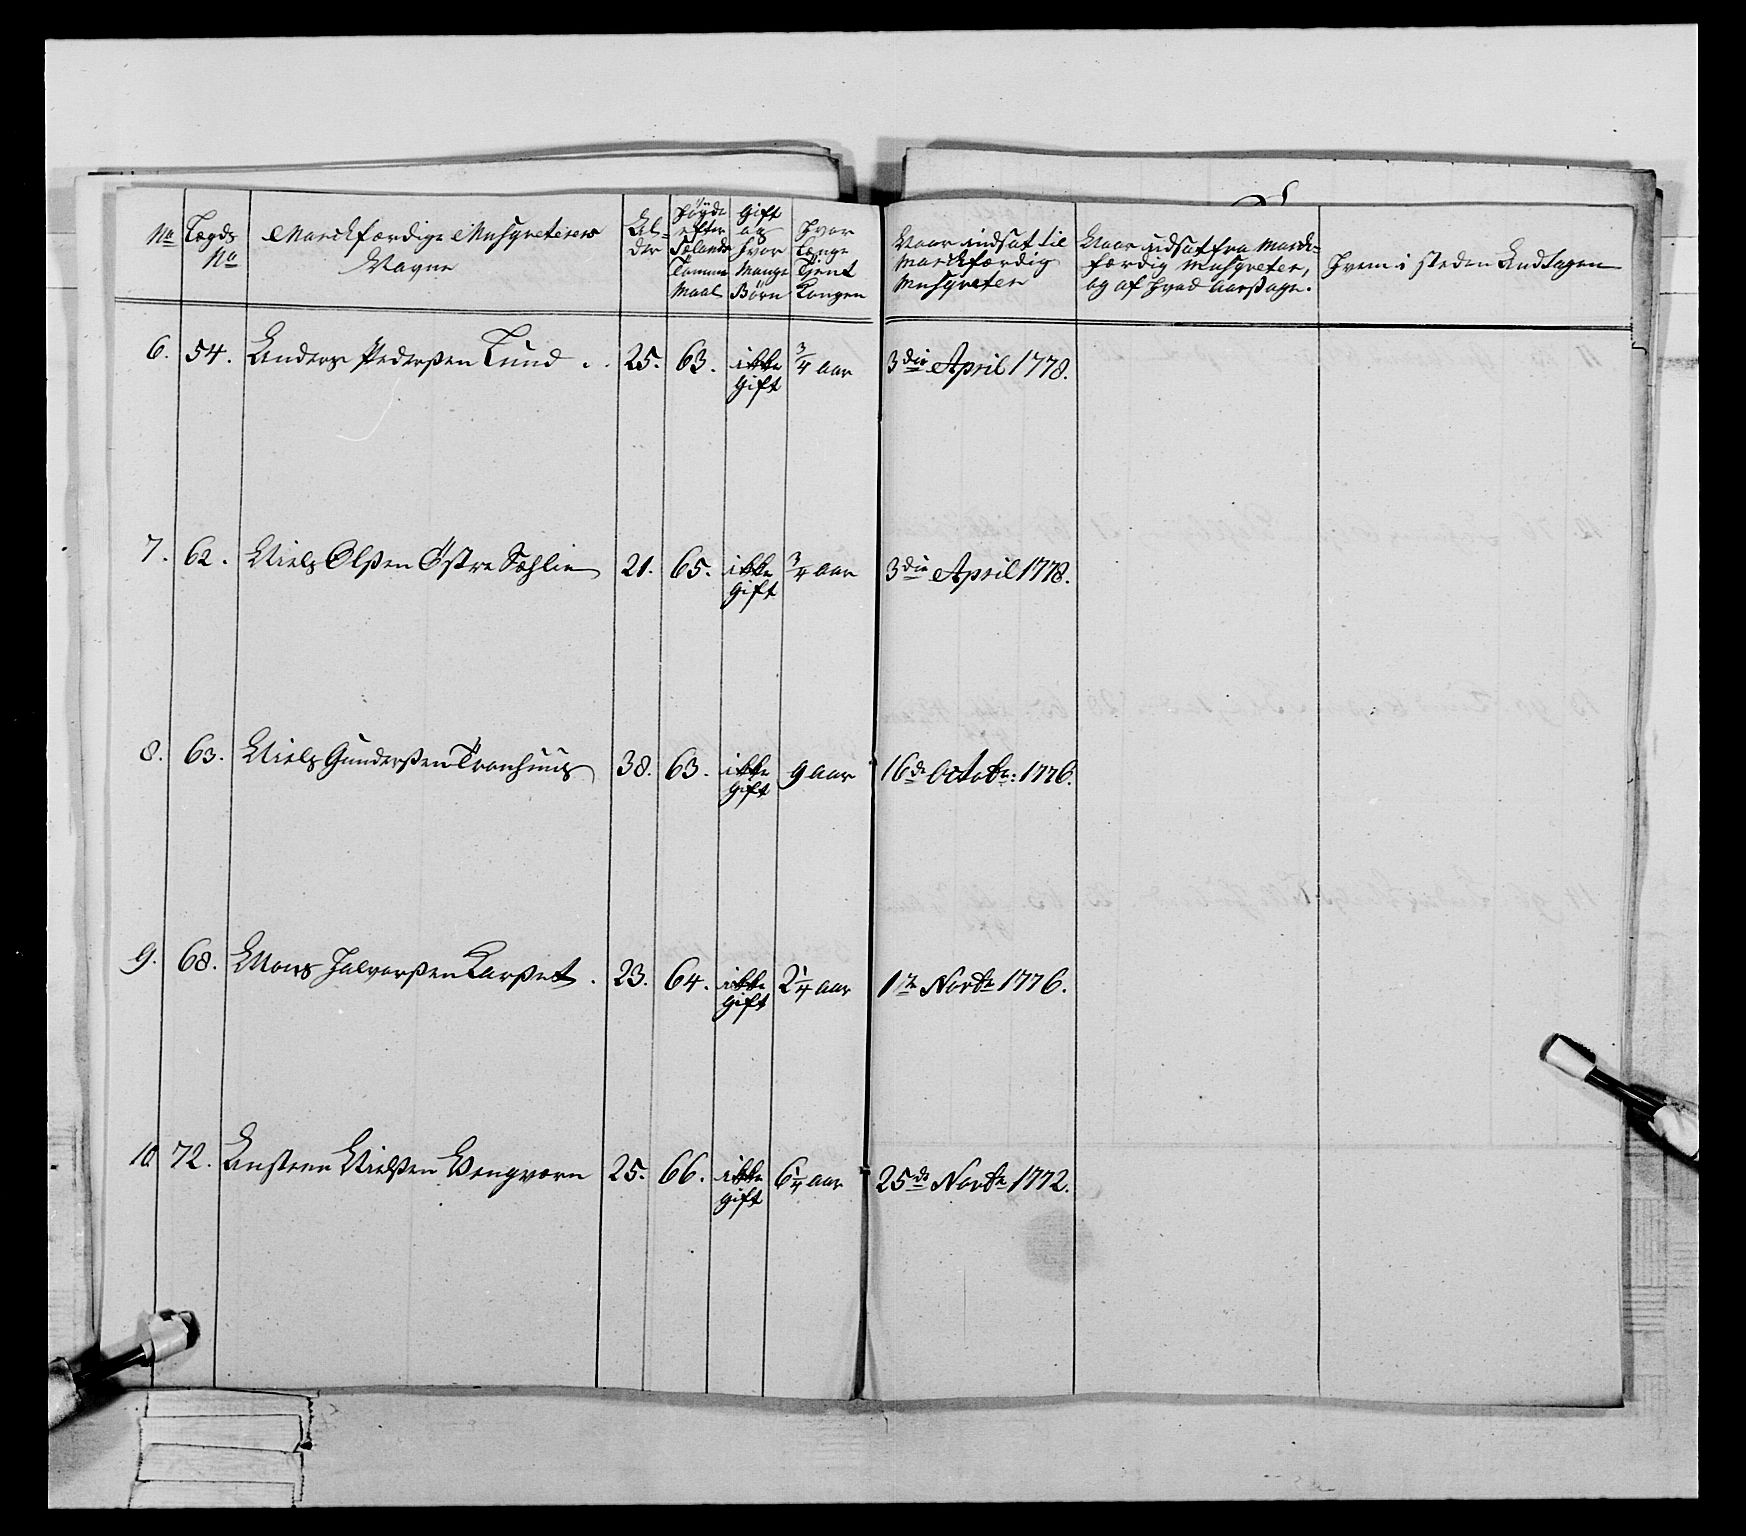 No Lægds No Marckfærdige Musqveterers Navne Al- der Høyde efter Siælands Tomme Maal Gift og Hvor Mange Børn Hvor Længe Tient Kongen Naar indsat til Marckfærdig Musqveteer Naar udsat fra Marck- færdig Musqveteer, og af Hvad Aarsage. Hvem i steden Andtagen
6. 54. Anders Pedersen Lund . . 25. 63. ikke Gift 3/4 aar 3die April 1778.
7. 62. Niels Olsen Østre Sæhlie 21. 65. ikke Gift 3/4 aar 3die April 1778.
8. 63. Niels Gundersen Tronhuus 38. 63. ikke Gift 9 aar 16de Octobr: 1776.
9. 68. Mons Halvorsen Karset . 23. 64. ikke Gift 2 1/4 aar 1te Novbr 1776.
10 72. Ansteen Nielsen Wengværn 25. 66. ikke Gift 6 1/4 aar 25de Novbr 1772.